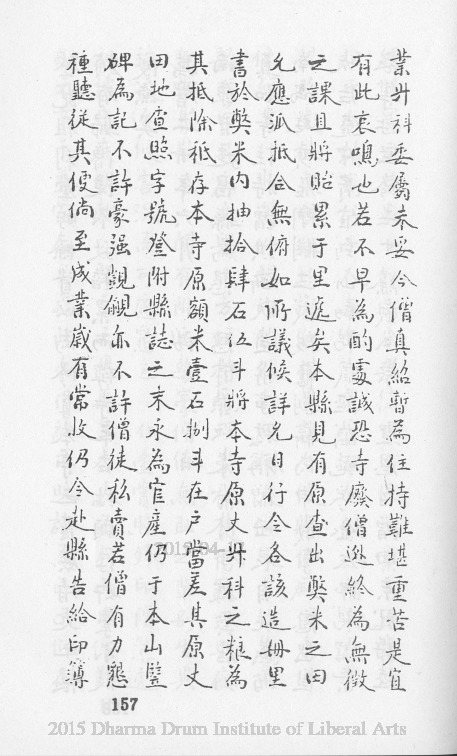 業升科委屬未妥今僧真紹暫為住持難堪重苦是宜
有此哀鳴也若不早為酌處誠恐寺廢僧逃終為無徵
之課且將貽累于里遞矣本縣見有原查出獘米之田
允應派抵合無俯如所議候詳允日行令各該造冊里
書於獘米內抽拾肆石伍斗將本寺原丈升科之糧為
其抵除秪存本寺原額米壹石捌斗在戶當差其原丈
田地查照字號登附縣誌之末永為官產仍于本山豎
碑為記不許豪强覬覦亦不許僧徒私賣若僧有力懇
種聽從其便尚至成業歲有常收仍令赴縣告給印簿
157
2015 Dharma Drum Institute of Liberal Arts